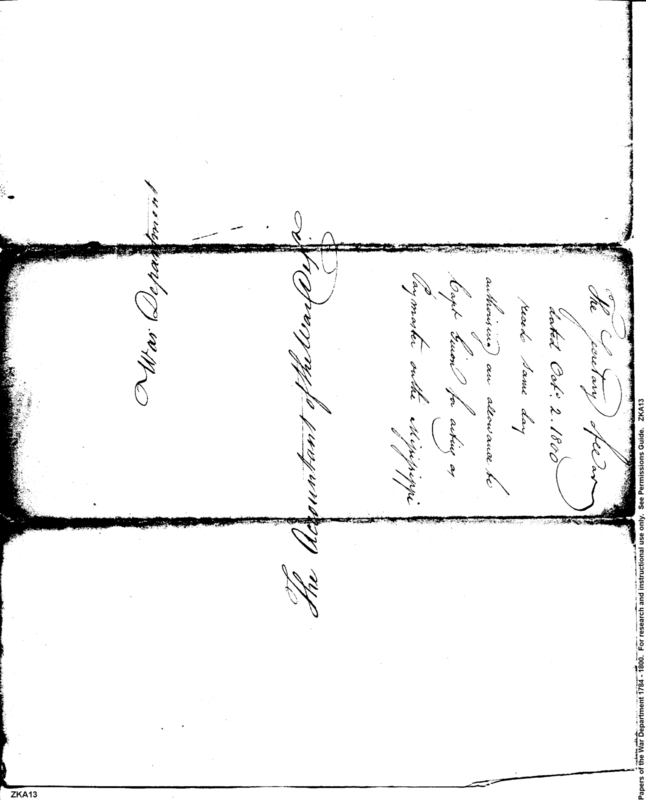 War Department
The Accountant of the War Dept
The Secretary of War
dated Oct. 2. 1800
recd same day
authorising an allowance to
Capt Guion for acting as
Paymaster on the Missisippi
Papers of the War Department 1784 - 1800. For research and instructional use only. See Permissions Guide. ZKA13
ZKA13